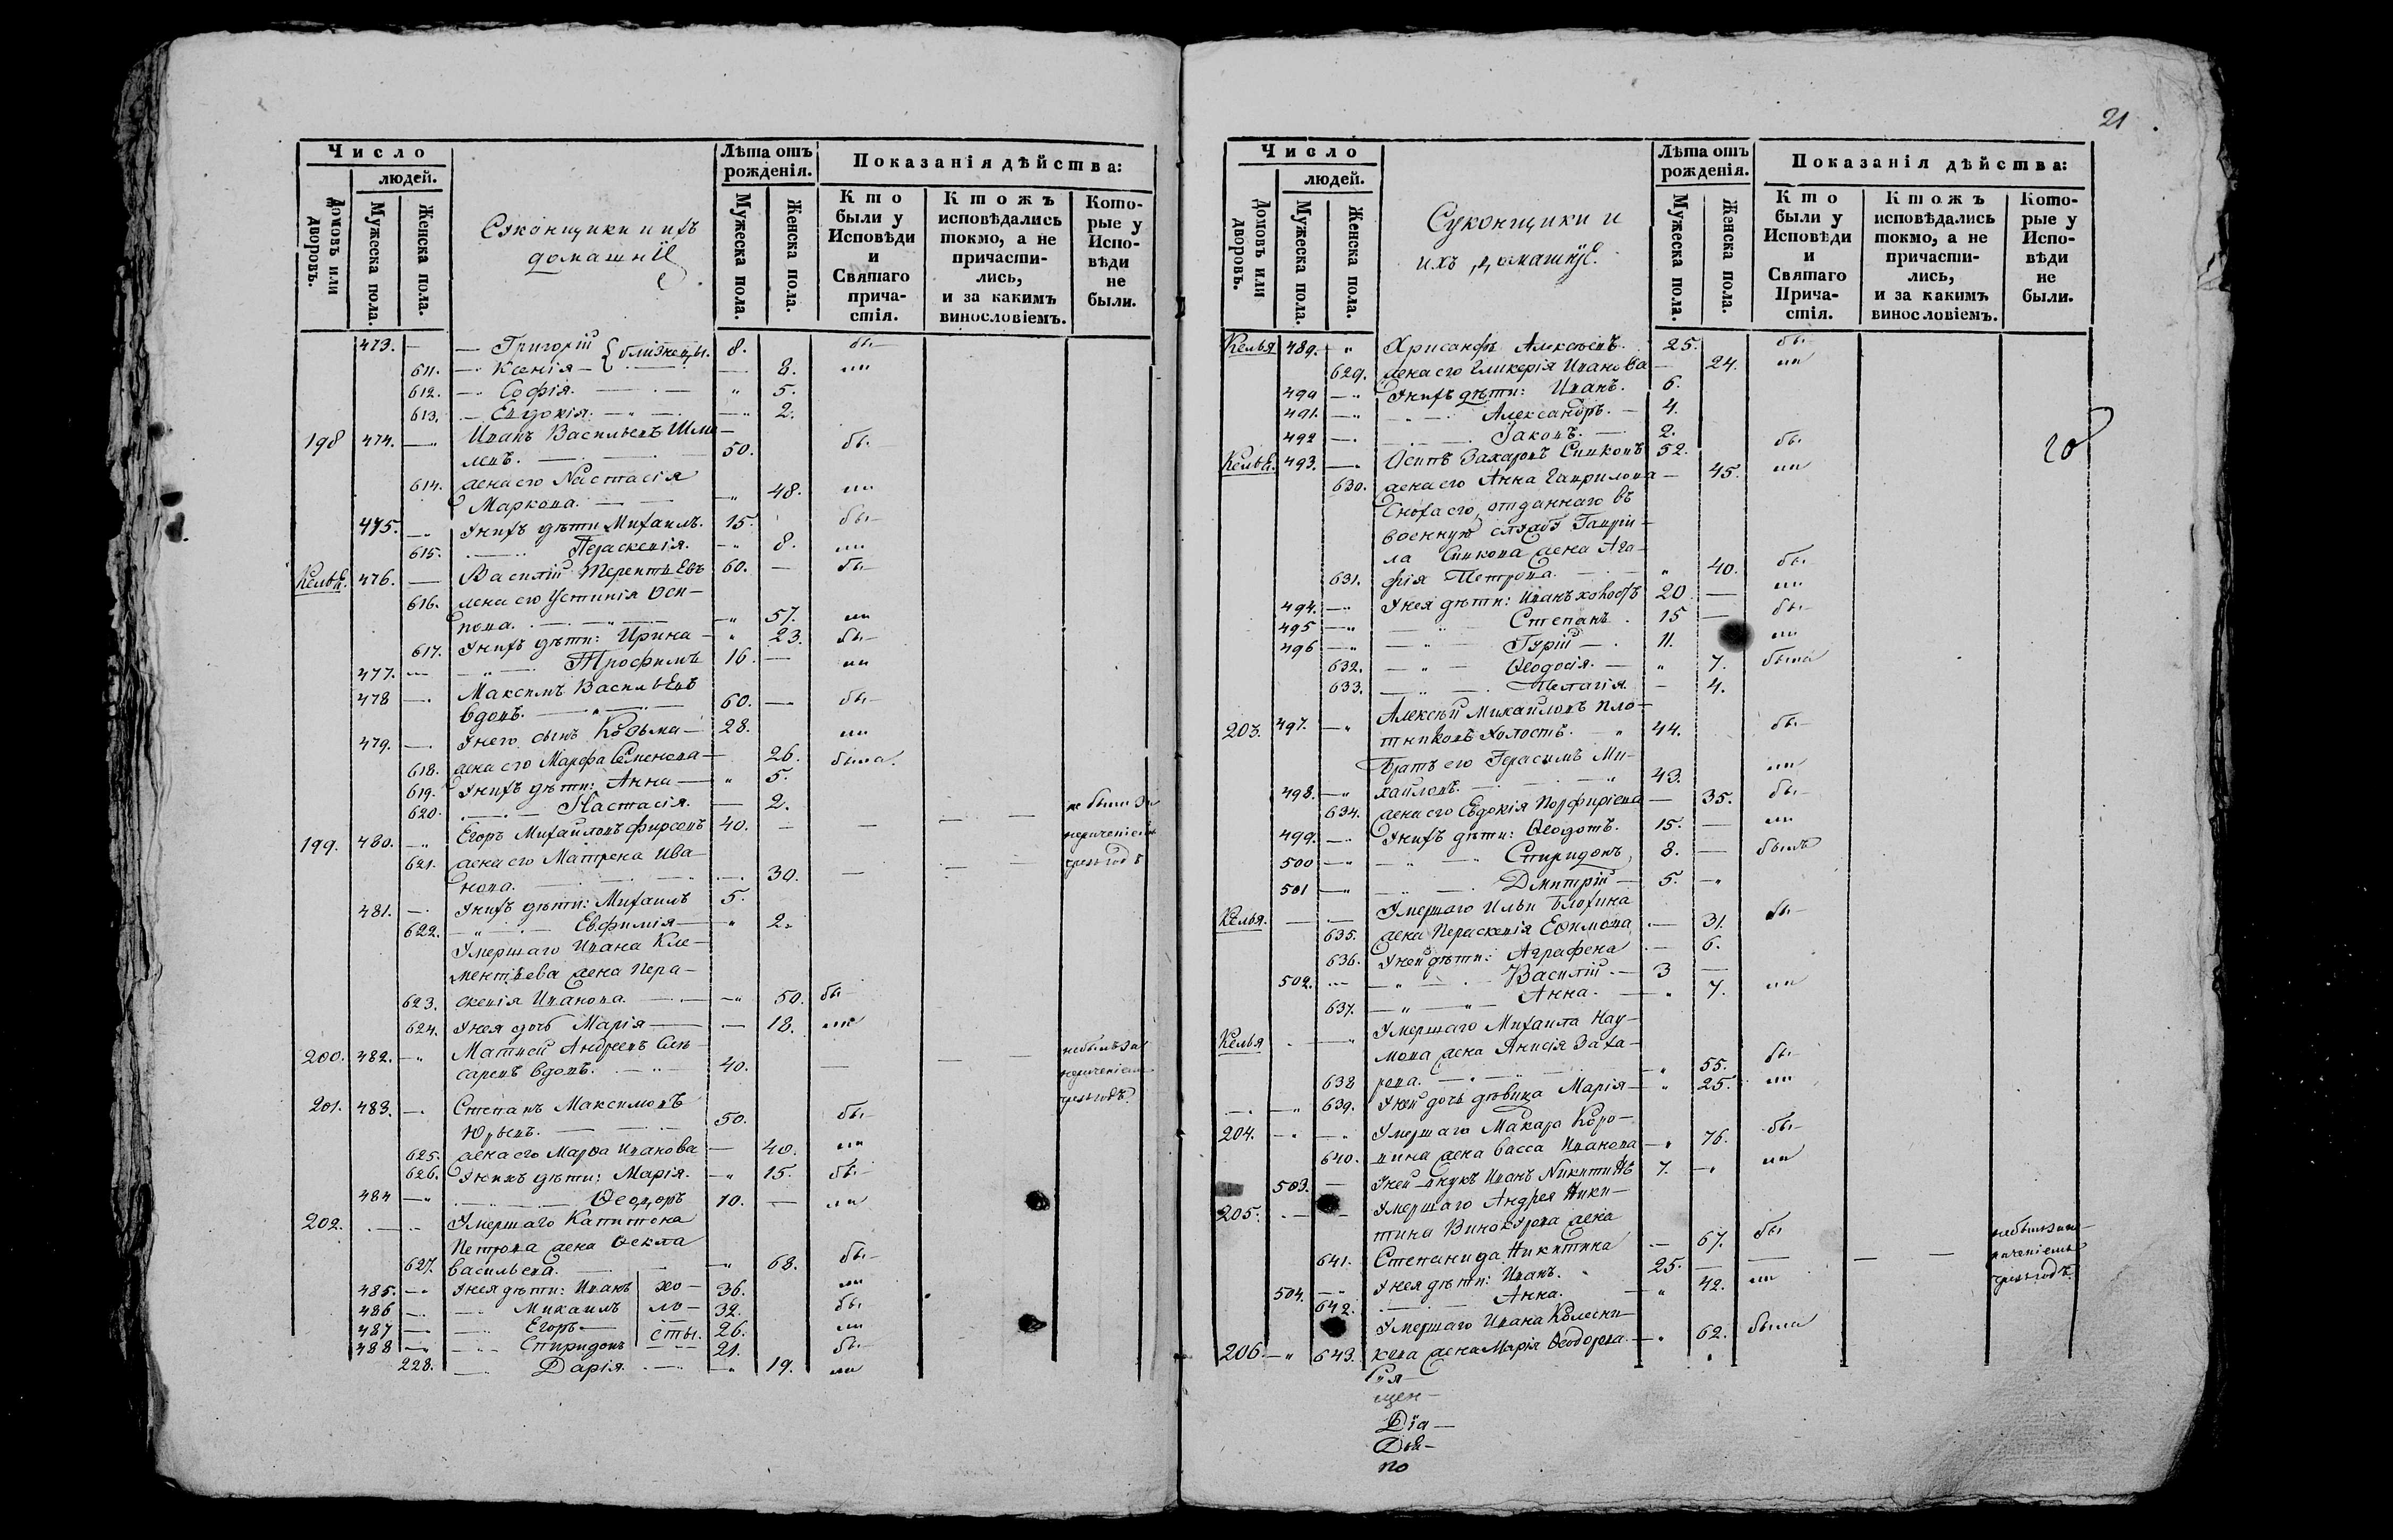 Число
людей.
Домовъ или дворовъ.
Мужеска пола.
Женска пола.
Суконщики и ихъ
домашнїе
Лѣта отъ
рожденія.
Мужеска пола.
Женска пола.
Показанія дѣйства:
Кто
были у
Исповѣди
и
Святаго
прича-
стія.
Ктожъ
исповѣдались
токмо, а не
причасти-
лись,
и за какимъ
винословіемъ.
Кото-
рые у
Испо-
вѣди
не
были.
473. — Григорій близнецы. 8. бы-
611. — Ксенія — 8. ли
612. — Софія. — " 5.
613. — Евдокія. — 2.
198 474. — Иванъ Васильевъ Шме-
левъ. — 50. бы-
614. жена его Настасія
Маркова. — " 48. ли
475. — У нихъ дѣти Михаилъ. 15. бы-
615. — Параскевія. — 8. ли
Келья. 476. — Василій Терентьевъ 60. — бы-
616. жена его Устинія Оси-
пова. — " 57. ли
617. У нихъ дѣти: Ирина — " 23. бы-
477. — Трофимъ 16. — ли
478 — Максимъ Васильевъ
вдовъ. — 60. — бы-
479. — У него сынъ Козьма — 28. ли
618. жена его Марфа Семенова — 26. была.
619. У нихъ дѣти: Анна — " 5.
620. — Настасія. — 2.
199. 480. — Егоръ Михайловъ Фирсовъ 40. — — — — не были за
нерачениемъ
621. жена его Матрена Ива-
нова. — 30. — — — чрезъ годъ
481. — У нихъ дѣти: Михаилъ 5.
622. — Евфимія — " 2.
Умершаго Ивана Кле-
ментьева жена Пера-
623. скевія Иванова. — " 50. бы-
624. У нея дочь Марія — — 18. ли
200. 482. — Матвей Андреевъ Сле-
саревъ вдовъ. — 40. — — — не былъ за
нерачениемъ
чрезъ годъ.
201. 483. — Степанъ Максимовъ
Юрьевъ. — 50. бы-
625. жена его Марѳа Иванова — 40. ли
626. У нихъ дѣти: Марія. — " 15. бы-
484 — Ѳеодоръ 10. — ли
202. — Умершаго Капитона
Петрова жена Ѳекла
627. Васильева. — " 68. бы-
485. — У нея дѣти: Иванъ хо- 36. ли
486 — Михаилъ ло- 32. бы
487 — Егоръ — сты. 26. ли
488 — Спиридонъ — 21. бы-
228. — Дарія. — " 19. ли
21
Число
людей.
Домовъ или дворовъ.
Мужеска пола.
Женска пола.
Суконщики и
ихъ домашнїе.
Лѣта отъ
рожденія.
Мужеска пола.
Женска пола.
Показанія дѣйства:
Кто
были у
Исповѣди
и
Святаго
Прича-
стія.
Ктожъ
исповѣдались
токмо, а не
причасти-
лись,
и за какимъ
винословіемъ.
Кото-
рые у
Испо-
вѣди
не
были.
Келья 489. — " Хрисанфъ Алексѣевъ. 25. бы-
629. жена его Гликерія Иванова — 24. ли
490 — " У нихъ дѣти: Иванъ. 6.
491. — " Александръ. — 4.
492 — Іаковъ. — 2.
Келья. 493. — Осипъ Захаровъ Симковъ 52. бы-
630. жена его Анна Гаврилова — 45. ли
Сноха его, отданнаго въ
военную службу Гаврии-
ла Симкова жена Ага-
631. фія Петрова. — " 40. бы-
494. — " У нея дѣти: Иванъ холостъ 20 — ли
495 — " Степанъ. 15 — бы-
496 — " Гурій — 11. ли
632. — " Ѳеодосія. — " 7. была
633. — Пелагія. — 4.
203. 497. — " Алексѣй Михайловъ Пло-
тниковъ холостъ. — 44. бы-
Братъ его Герасимъ Ми-
498. — " хайловъ. — 43. ли
634. жена его Евдокія Порфиріева — 35. бы-
499. — У нихъ дѣти: Ѳеодотъ. 15. — ли
500 — " Спиридонъ, 8. — былъ
501 — " Дмитрій — 5. — "
Келья. — Умершаго Ильи Блохина
635. жена Параскевія Ефимова — 31. бы-
636. У ней дѣти: Аграфена — 6.
502. — Василій — 3 —
637. — " Анна. — " 7. ли
Келья — " Умершаго Михаила Нау-
мова жена Анисія Заха-
638 рова. — " 55. бы-
639. У ней дочь дѣвица Марія — " 25. ли
204. — Умершаго Макара Коро-
640. вина жена Васса Иванова — " 76. бы-
503. — У ней внукъ Иванъ Никитинъ 7. — " ли
205. — Умершаго Андрея Ники-
тина Винокурова жена
641. Степанида Никитина — 67. бы
504. — У нея дѣти: Иванъ. 25. — — — — не былъ за не-
рачениемъ
чрезъ годъ.
642. Анна. — " 42. ли
Умершаго Ивана Колесни-
206. — " 643. кова жена Марія Ѳеодорова. — " 62. была
щен-
Діа-
по